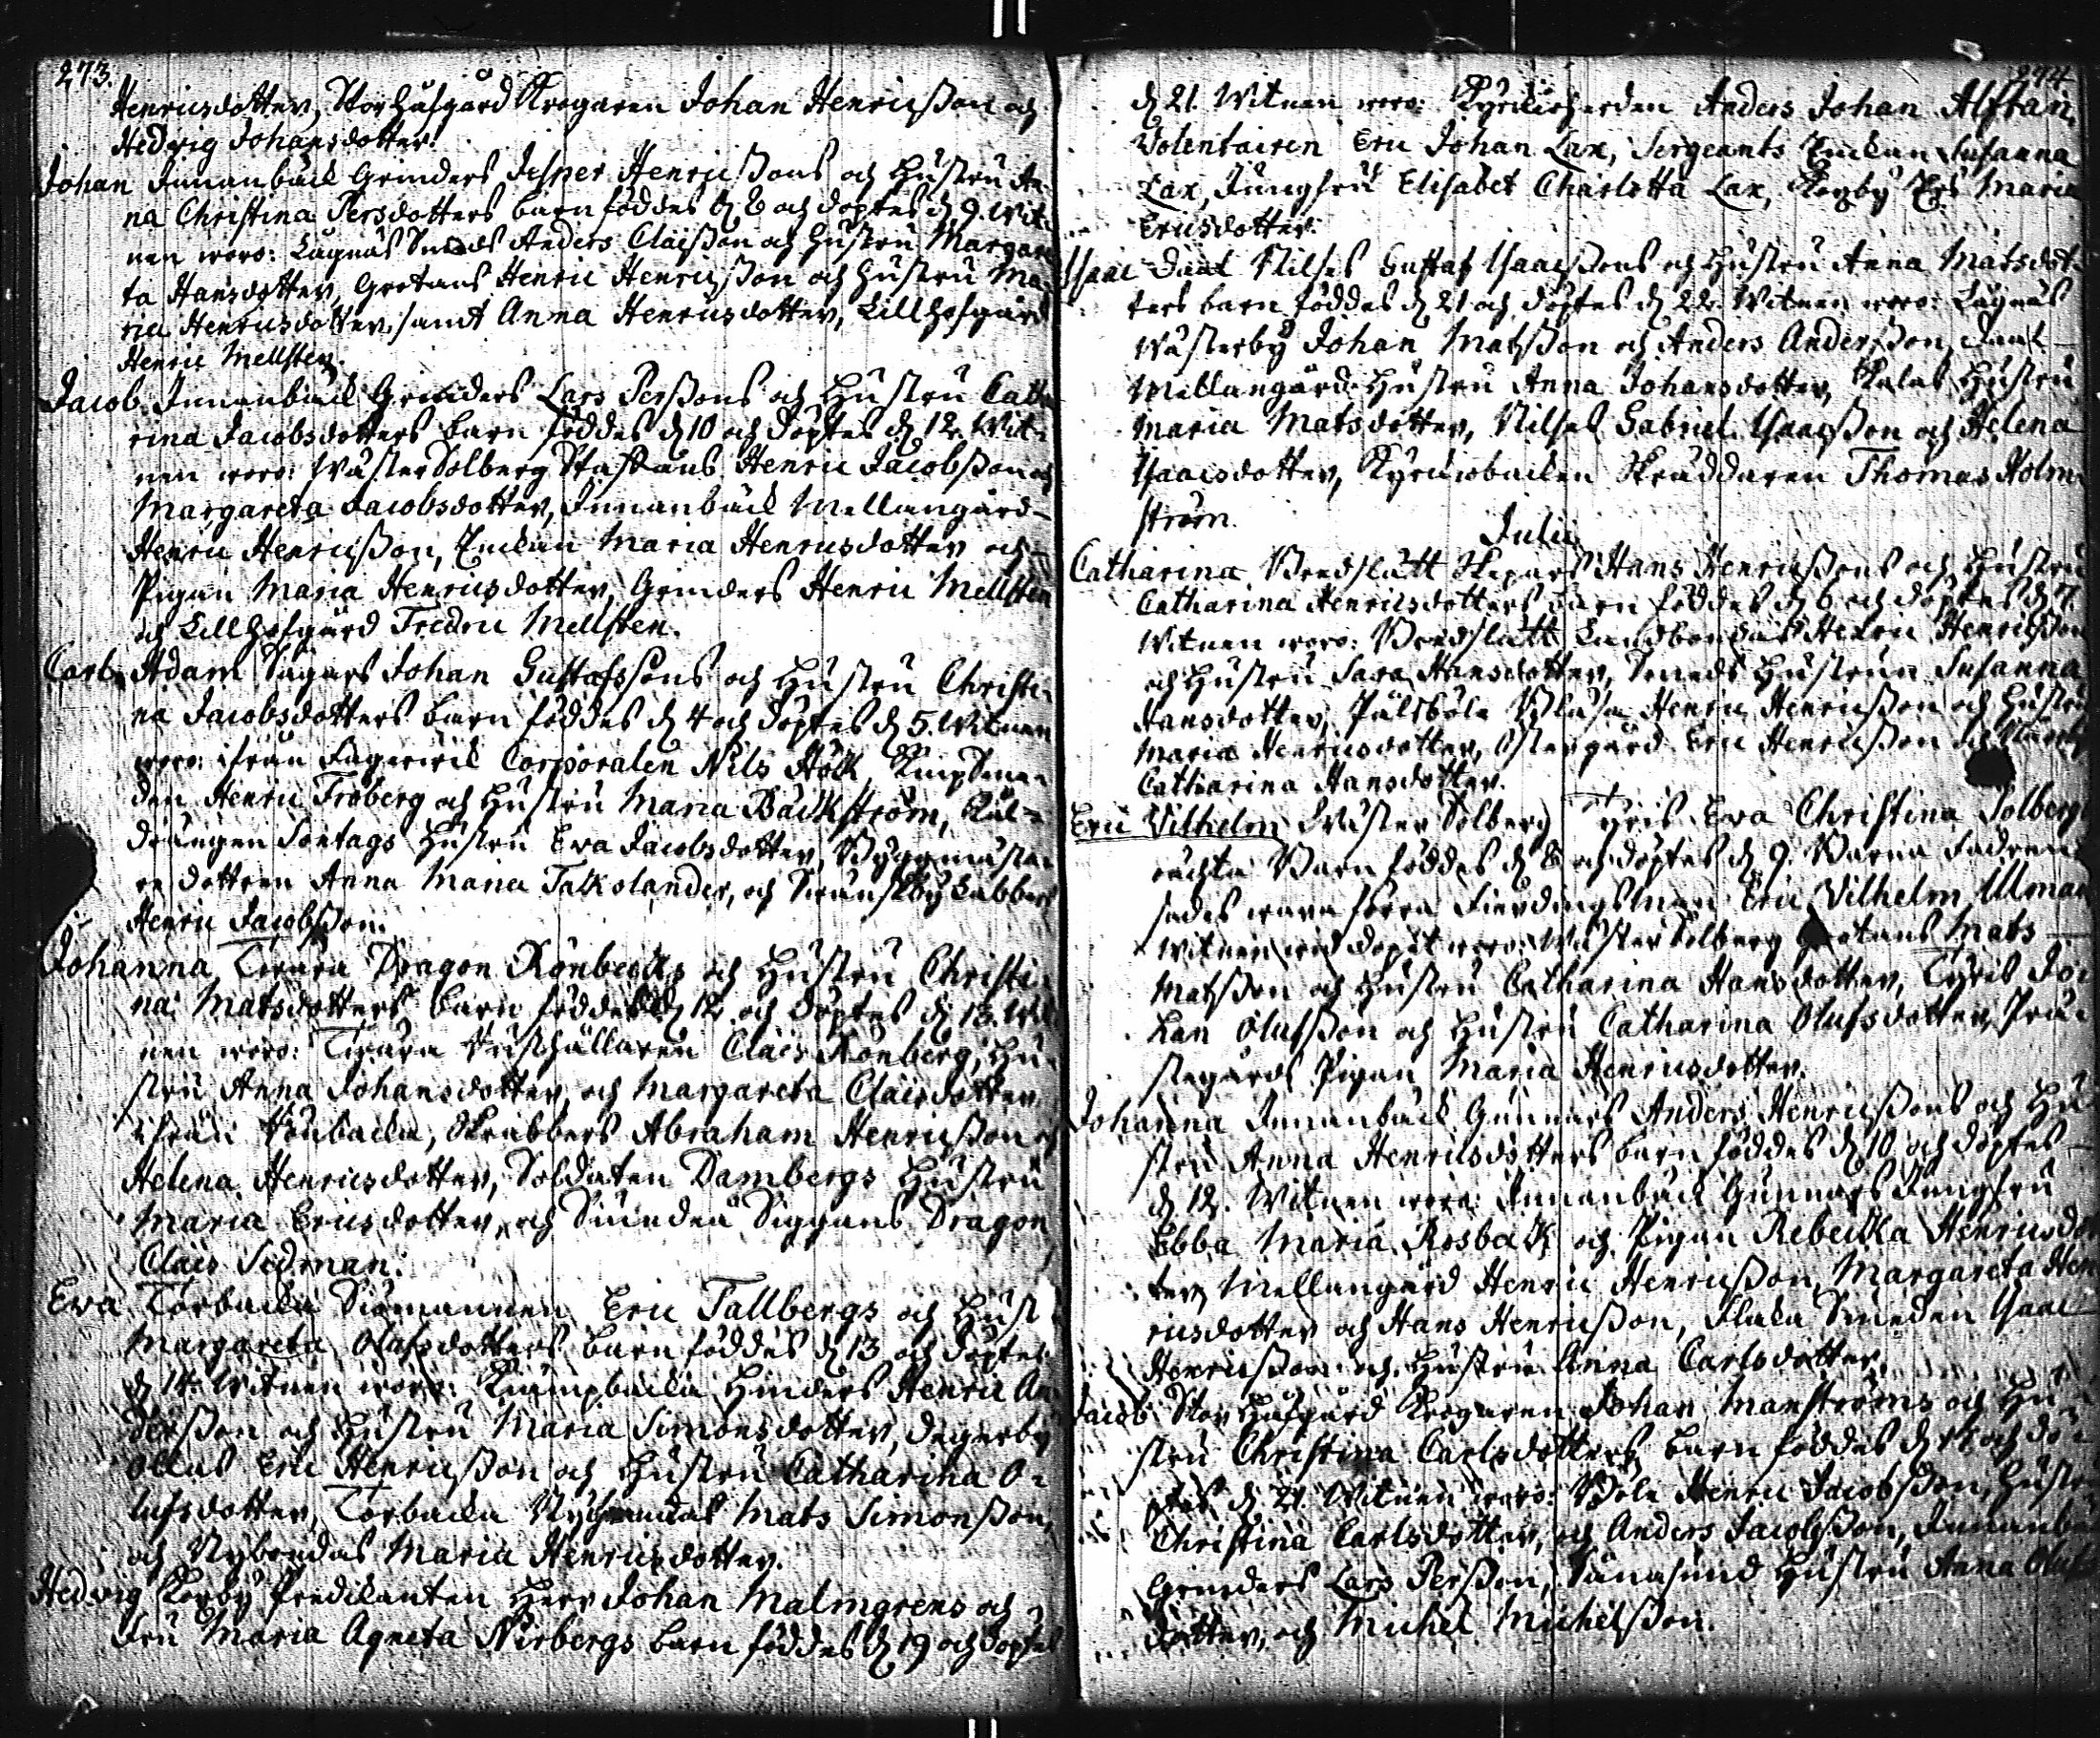 273.
Henricsdotter, Storhufgård Krogaren Johan Henricsson och
Hedvig Johansdotter.
Johan Innanbäck Grinders Jesper Henricssons och Hustru An-
na Christina Persdotters barn föddes d. 8 och döptes d. 9. Wit-
nen woro: Lägnäs Smeds Anders Claisson och hustru Margare
ta Hansdotter, Grotans Henric Henricsson och hustru Ma-
ria Henricsdotter, samt Anna Henricsdotter, Lillhofgård
Henric Mellsten.
Jacob. Innanbäck Grinders Lars Perssons och Hustru Catha
rina Jacobsdotters barn föddes d. 10 och döptes d. 12. Wit-
nen woro: WästerSolberg Staffans Henric Jacobsson och
Margareta Jacobsdotter, Innanbäck Mellangård
Henric Henricsson, Enkan Maria Henricsdotter och
Pigan Maria Henricsdotter, Grinders Henric Mellsten
och Lillhofgård Fredric Mellsten.
Carl Adam Sågars Johan Gustafssons och Hustru Christi-
na Jacobsdotters barn föddes d. 4 och döptes d. 5. Witnen
woro: ifrån Fagerwik Corporalen Nils Hölk, KnipSme-
den Henric Froberg och Hustru Maria Bäckström, Kål-
drängen Sontags Hustru Eva Jacobsdotter, Byggmäste-
re dottren Anna Maria Talkolander, och Swänskby Labbers
Henric Jacobsson.
Johanna, Twära Dragon Rönbecks och Hustru Christi-
na Matsdotters barn föddes d. 12 och döptes d. 13. Wit-
nen woro: Twära Rusthållaren Clais Rönberg, Hu-
stru Anna Johansdotter, och Margareta Claisdotter,
ifrån Skrabbers Abraham Henricsson och
Helena Henricsdotter, Soldaten Dambergs Hustru
Maria Ericsdotter, och Siundeå Siggans Dragon
Clais Sedman.
Eva Torbacka Siömannen Eric Tallbergs och Hust
Margareta Olofsdotters barn föddes d. 13 och döptes
d. 14. Witnen woro: Hinders Henric An-
dersson och Hustru Maria Simonsdotter, Degerby
Ollas Eric Henricsson och Hustru Catharina O-
lufsdotter, Torbacka Mats Simonsson,
och Nybondas Maria Henricsdotter.
Hedvig Kyrby Predikanten Herr Johan Malmgrens och
Fru Maria Agneta Nirbergs barn föddes d. 19 och döptes
274
d. 21. Witnen woro: Kyrkioherden Anders Johan Alftan,
Volentairen Eric Johan Lax, Sergeants Enkan Susanna
Lax, Jungfru Elisabet Charlotta Lax, Maria
Ericsdotter.
Isaac Nilses Gustaf Isaacssons och Hustru Anna Matsdot-
ters barn föddes d. 21 och döptes d. 22. Witnen woro: Lägnäs
Wästerby Johan Matsson och Anders Andersson,
Mellangård Hustru Anna Johansdotter, Hustru
Maria Matsdotter, Nilses Gabriel Isaacsson och Helena
Isaacsdotter, Kyrkiobacken Skräddaren Thomas Holm-
ström.
Julii
Catharina, Bredslätt Skepars Hans Henricssons och Hustru
Catharina Henricsdotters barn föddes d. 6 och döptes d. 7.
Witnen woro: Bredslätt Henric Henricsson
och Hustru Sara Hansdotter, Smeds Hustrun Susanna
Hansdotter, Pålsböle Henric Henricsson och Hustru
Maria Henricsdotter, Östergård Eric Henricsson och
Catharina Hansdotter.
Eric Vilhelm Wäster Solberg Tyris Eva Christina Solbergs
oächta Barn föddes d. 8 och döptes d. 9. Barna Fadren
sades wara förra Fierdingsman Eric Vilhelm Ulman
Witnen wid dopet woro: WästerSolberg Grotans Mats
Matsson och Hustru Catharina Hansdotter, Tyris Jo-
han Olufsson och Hustru Catharina Olufsdotter, Prä-
stegårds Pigan Maria Henricsdotter.
Johanna Innanbäck Gunnars Anders Henricssons och Hu-
stru Anna Henricsdotters barn föddes d. 10 och döptes
d. 12. Witnen woro: Innanbäck Gunnars Jungfru
Ebba Maria Rosbäck och Pigan Rebecka Henricsdot
ter, Mellangård Henric Henricsson, Margareta Hen
ricsdotter och Hans Henricsson, Smeden Isaac
Henricsson och Hustru Anna Carlsdotter.
Jacob Storhufgård Krogaren Johan Manströms och Hu-
stru Christina Carlsdotters barn föddes d. 14 och dö-
ptes d. 21. Witnen woro: Böle Henric Jacobsson, Hustru
Christina Carlsdotter, och Anders Jacobsson, Innanbäck
Grinders Lars Persson, Hustru Anna Olufs
dotter, och Michel Michelsson.